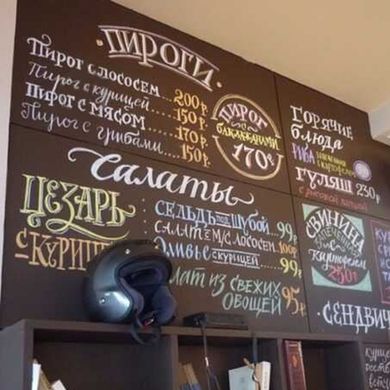 ПИРОГИ
Пирог с лососем 200р.
Пирог с курицей 150р.
Пирог с мясом 170р.
Пирог с грибами 150р.
ПИРОГ
С
БАКЛАЖАНАМИ
170р
Салаты
ЦЕЗАРЬ
С КУРИЦЕЙ
СЕЛЬДЬ под ШУБОЙ 99р
САЛАТ С М/С ЛОСОСЕМ 100р
Оливье с КУРИЦЕЙ 99р
САЛАТ ИЗ СВЕЖИХ
ОВОЩЕЙ 95р
ГОРЯЧИЕ
блюда
РЫБА
ГУЛЯШ 230р
СВИНИНА
запечённая
с
картофелем
250р
СЕНДВИЧ